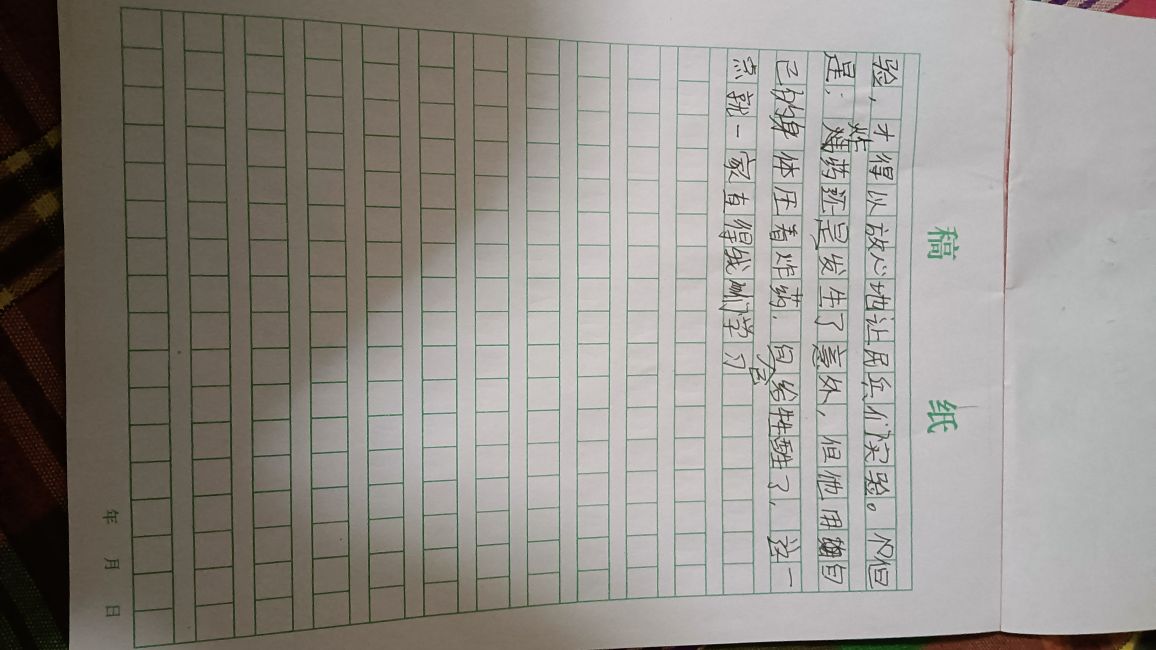 稿 纸
验，才得以放心地让民兵们实验。不但
是；炸药班是发生了意外，但他用自
己的身体压着炸药，自己给牲了，这一
点就一家直得我们学习
年 月 日